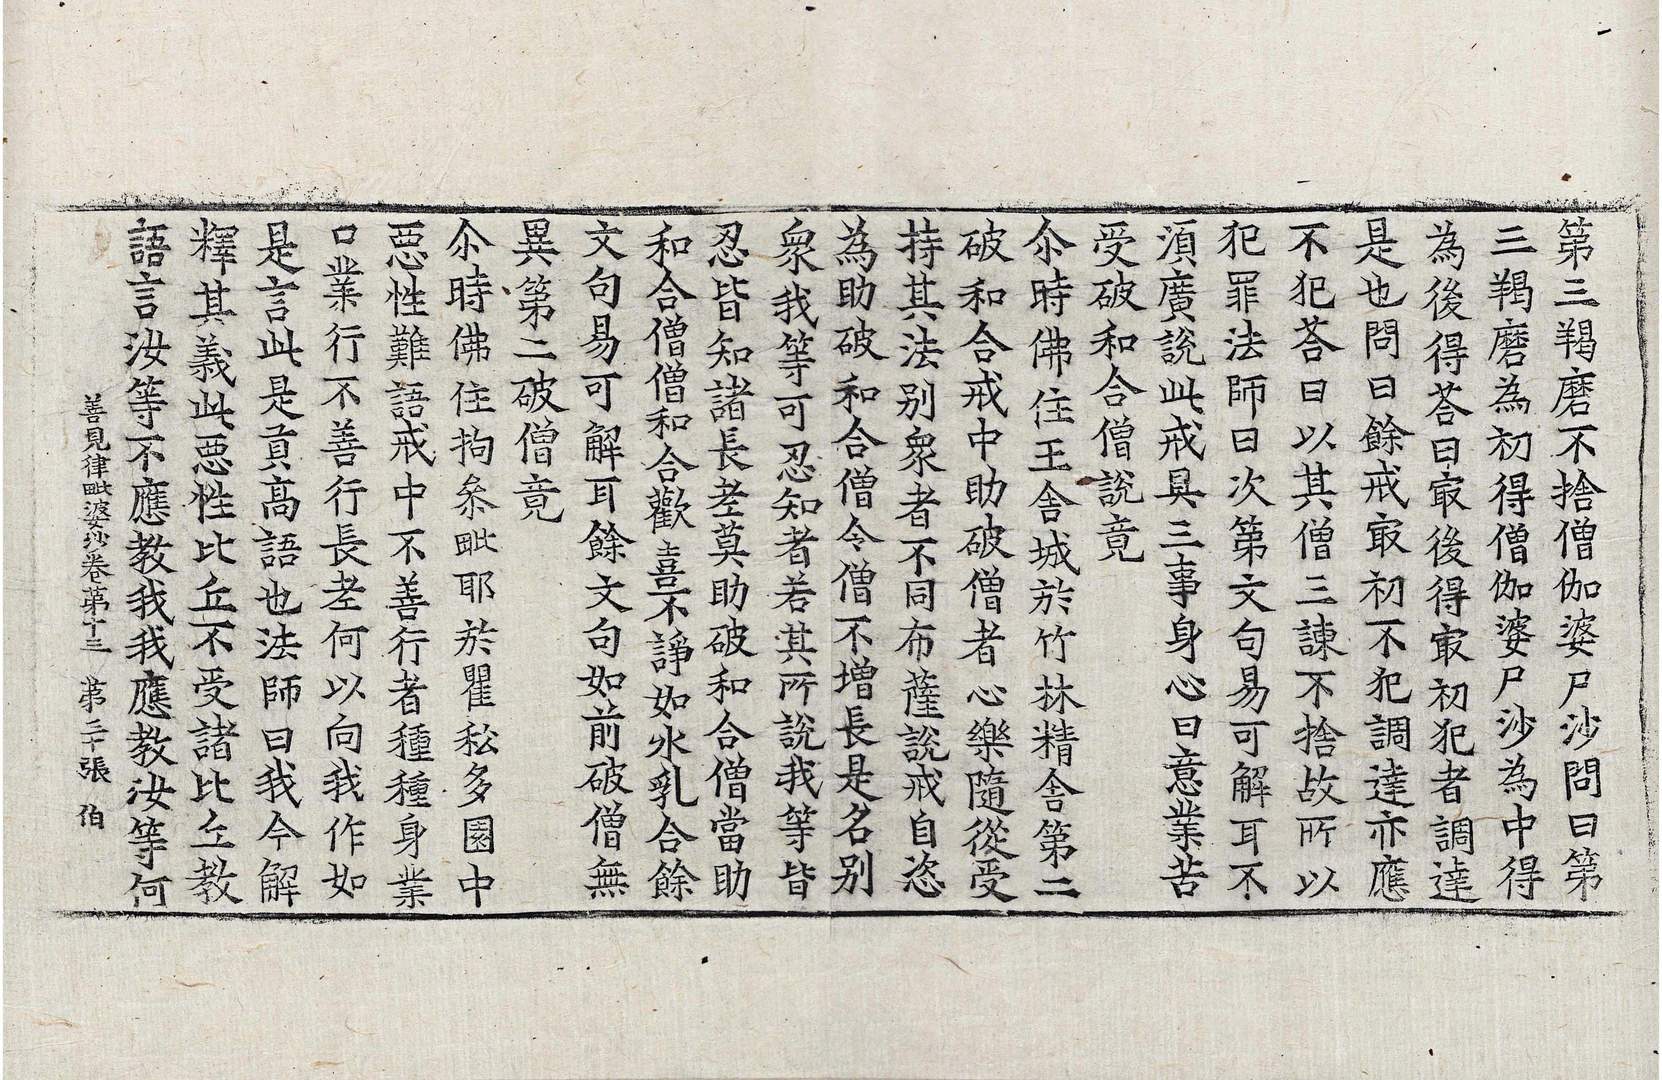 第三羯磨不捨僧伽婆尸沙問曰第
三羯磨為初得僧伽婆尸沙為中得
為後得荅曰冣後得冣初犯者調達
是也問曰餘戒冣初不犯調達亦應
不犯荅曰以其僧三諫不捨故所以
犯罪法師曰次第文句易可解耳不
湏廣說此戒具三事身心口意業苦
受破和合僧說竟
尒時佛住王舍城於竹林精舍第二
破和合戒中助破僧者心樂隨從受
持其法别衆者不同布薩說戒自恣
為助破和合僧令僧不增長是名别
衆我等可忍知者若其所說我等皆
忍皆知諸長老莫助破和合僧當助
和合僧僧和合歡喜不諍如水乳合餘
文句易可解耳餘文句如前破僧無
異第二破僧竟
尒時佛住拘𠫭毗耶於瞿私多園中
惡性難語戒中不善行者種種身業
口業行不善行長老何以向我作如
是言此是貢高語也法師曰我今解
釋其義此惡性比丘不受諸比丘教
語言汝等不應教我我應教汝等何
善見律毗婆沙卷第十三　第二十張　伯